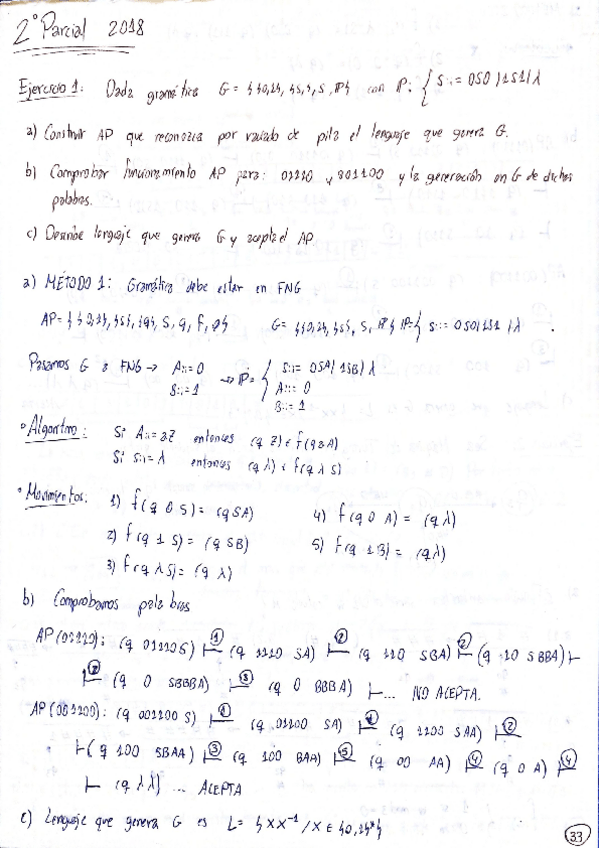 2º Parcial 2018
Ejercicio 1: Dada gramática G = {{0,1}, {S}, S, P} con P: { S::= 0S0 | 1S1 | λ
a) Construir AP que reconozca por vaciado de pila el lenguaje que genera G.
b) Comprobar funcionamiento AP para: 01110 y 001100 y la generación en G de dichas
palabras.
c) Describe lenguaje que genera G y acepta el AP.
a) MÉTODO 1: Gramática debe estar en FNG
AP = {{0,1}, {S}, {q}, S, q, f, ø} G = {{0,1}, {S}, S, P} P = { S::= 0S0 | 1S1 | λ .
Pasamos G a FNG → A::= 0 → P = { S::= 0SA | 1SB | λ
B::= 1 A::= 0
B::= 1
• Algoritmo: Si A::= aZ entonces (q Z) ϵ f(q a A)
Si S::= λ entonces (q λ) ϵ f(q λ S)
• Movimientos: 1) f(q 0 S) = (q SA) 4) f(q 0 A) = (q λ)
2) f(q 1 S) = (q SB) 5) f(q 1 B) = (q λ)
3) f(q λ S) = (q λ)
b) Comprobamos palabras
AP(01110): (q 01110 S) ⊢① (q 1110 SA) ⊢② (q 110 SBA) ⊢② (q 10 SBBA) ⊢
⊢② (q 0 SBBBA) ⊢③ (q 0 BBBA) ⊢... NO ACEPTA.
AP(001100): (q 001100 S) ⊢① (q 01100 SA) ⊢① (q 1100 SAA) ⊢②
⊢ (q 100 SBAA) ⊢③ (q 100 BAA) ⊢⑤ (q 00 AA) ⊢④ (q 0 A) ⊢④
⊢ (q λ λ) ... ACEPTA
c) Lenguaje que genera G es L = {XX⁻¹ / X ∈ {0,1}*}
33